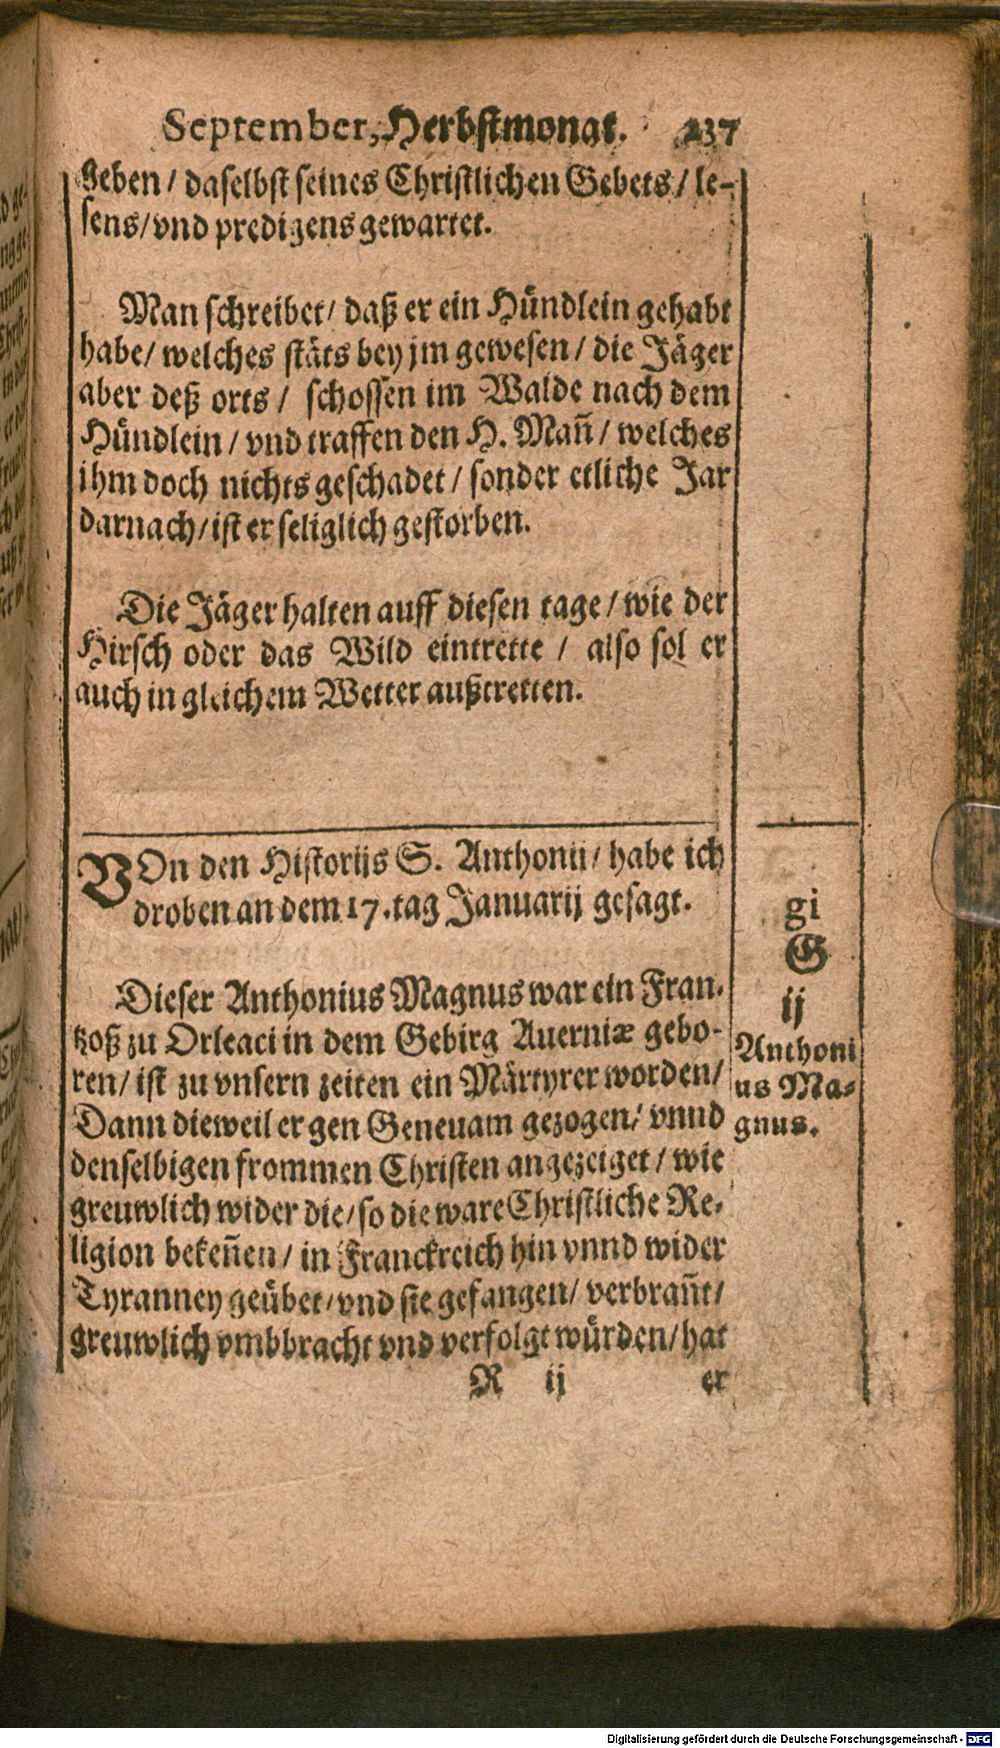 September, Herbstmonat. 237
geben / daselbst seines Christlichen Gebets / le-
sens / vnd predigens gewartet.
Man schreibet / daß er ein Hündlein gehabt
habe / welches stäts bey jm gewesen / die Jäger
aber deß orts / schossen im Walde nach dem
Hündlein / vnd traffen den H. Man̄ / welches
ihm doch nichts geschadet / sonder etliche Jar
darnach / ist er seliglich gestorben.
Die Jäger halten auff diesen tage / wie der
Hirsch oder das Wild eintrette / also sol er
auch in gleichem Wetter außtretten.
VOn den Historijs S. Anthonii / habe ich
droben an dem 17. tag Januarij gesagt.
gi
G
ij
Dieser Anthonius Magnus war ein Fran-
tzoß zu Orleaci in dem Gebirg Auerniæ gebo-
ren / ist zu vnsern zeiten ein Märtyrer worden /
Dann dieweil er gen Geneuam gezogen / vnnd
denselbigen frommen Christen angezeiget / wie
greuwlich wider die / so die ware Christliche Re-
ligion beken̄en / in Franckreich hin vnnd wider
Tyranney geübet / vnd sie gefangen / verbran̄t /
greuwlich vmbbracht vnd verfolgt würden / hat
Anthoni
us Ma-
gnus.
R ij er
Digitalisierung gefördert durch die Deutsche Forschungsgemeinschaft - DFG